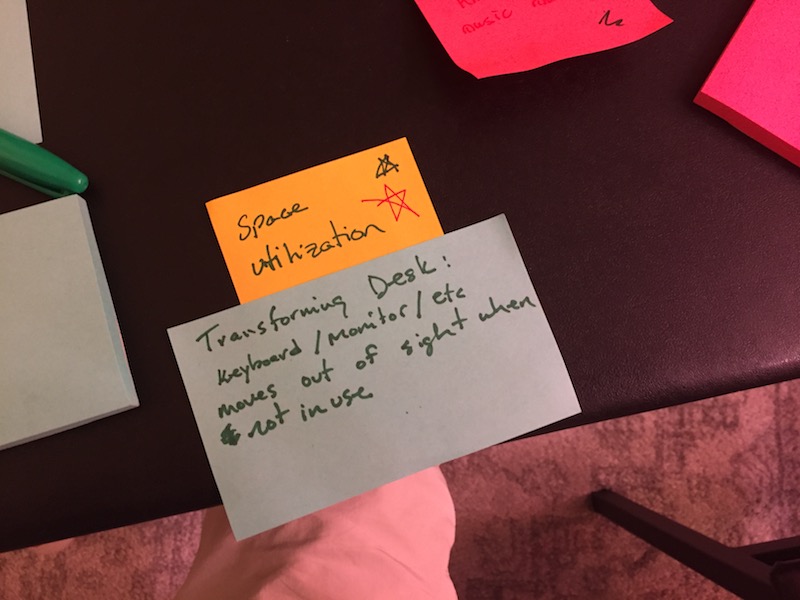 music
Space
utilization
Transforming Desk:
keyboard/monitor/etc
moves out of sight when
not in use